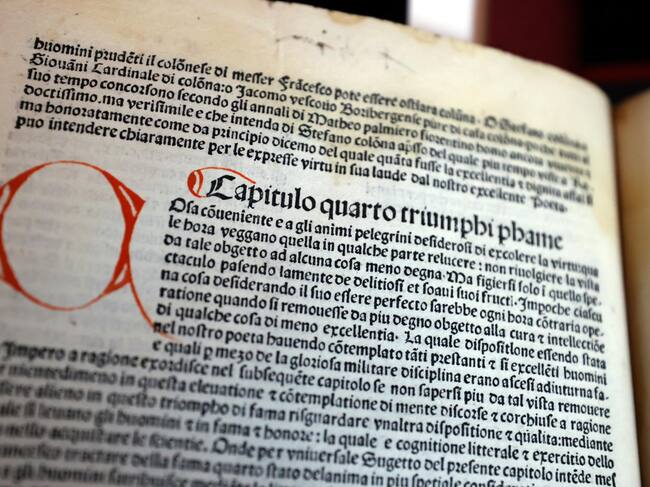 huomini prudẽti il colõnese di messer Frãcesco pote essere ostiara colũna. O Stefano
Giovãni Cardinale di colõna: o Jacomo vescovo Bozibergense pure di casa colõna
suo tempo concorsono secondo gli annali di Matheo palmiero fiorentino homo ancora
doctissimo. ma verisimile e che intenda di Stefano colõna apsso del quale piu tempo visse
ma honoratamente come da principio dicemo del quale quãta fusse la excellentia & dignita
puo intendere chiaramente per le expresse virtu in sua laude dal nostro excellente Poeta.
Capitulo quarto triumphi phame
Osa cõueniente e a gli animi pelegrini desiderosi di excolere la virtu: qua
le hora veggano quella in qualche parte relucere: non riuolgiere la vista
da tale obgetto ad alcuna cosa meno degna. Ma figiersi solo i quello spe
ctaculo pasendo lamente de delitiosi et soaui suoi fructi. Impoche ciascu
na cosa desiderando il suo essere perfecto sarebbe ogni hora cõtraria ope
ratione quando si remouesse da piu degno obgetto alla cura & intellectiõe
di qualche cosa di meno excellentia. La quale dispositione essendo stata
nel nostro poeta hauendo cõtemplato tãti prestanti & si excellẽti huomini
e quali p mezo de la gloriosa militare disciplina erano ascesi ad iuntura fa-
Impero a ragione exordisce nel subsequẽte capitolo se non sapersi piu da tal vista remouere
nientedimeno in questa eleuatione & cõtemplatione di mente discorse & corchiuse a ragione
essere alieno in questo triompho di fama risguardare vnaltra dispositione & qualita: mediante
si leuano gli huomini & in fama & honore: la quale e cognitione litterale & exercitio dello
nello acquistare le scientie. Onde per vniuersale Sugetto del presente capitolo intẽde
tractare della fama quarto stato delanima in piu spetiale